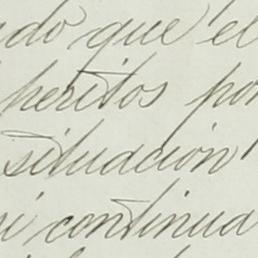 ndo que el
peritos por
situación
ni continua